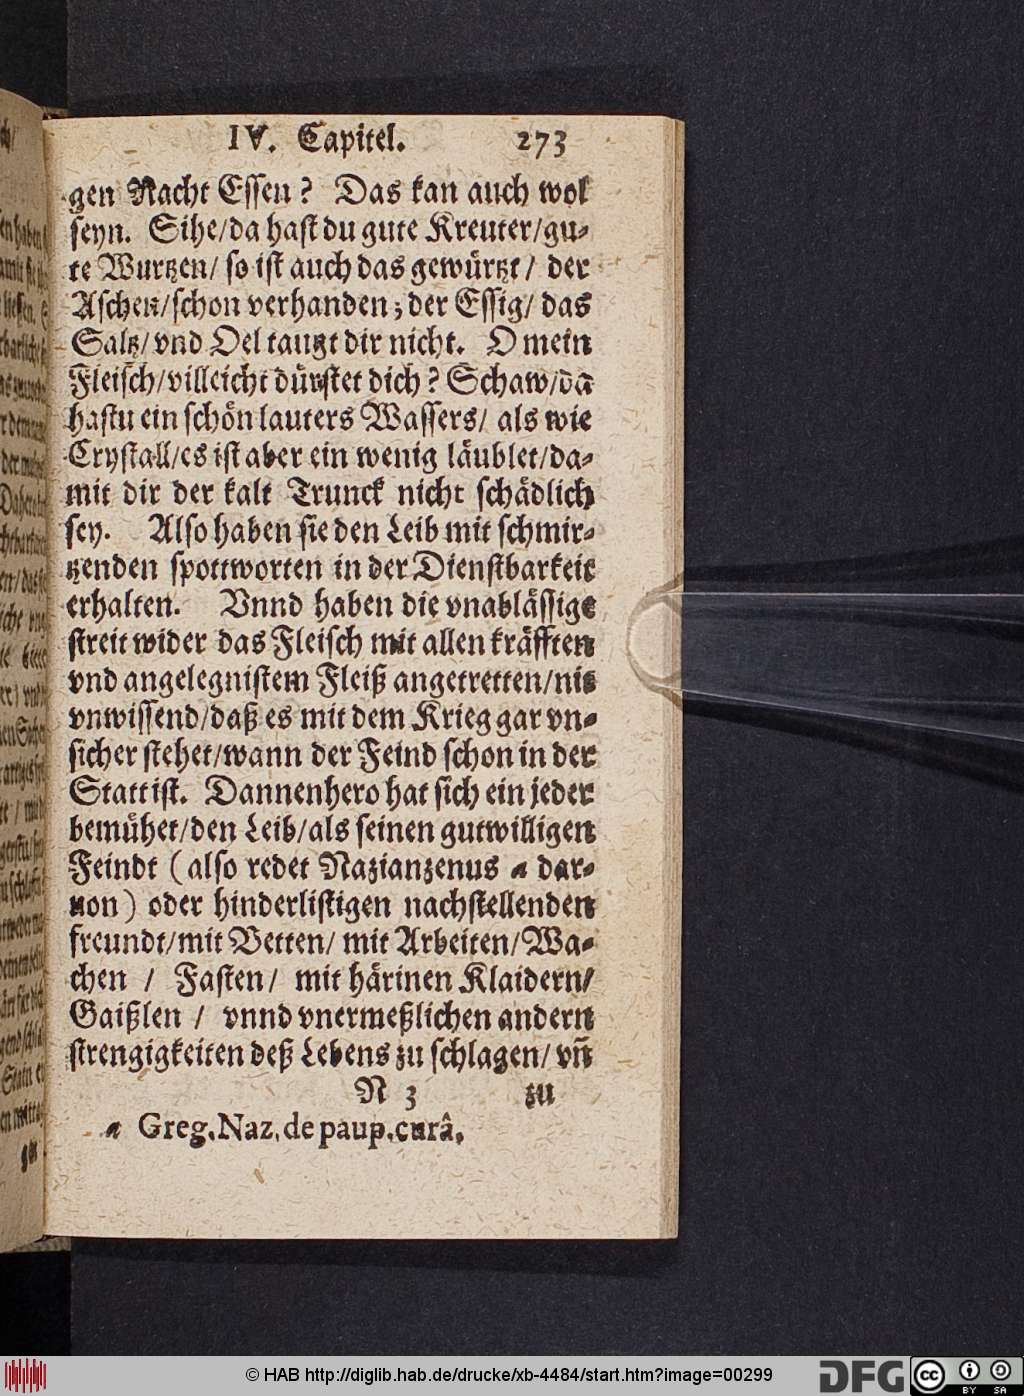 IV. Capitel. 273
gen Nacht Essen? Das kan auch wol
seyn. Sihe/da hast du gute Kreuter/gu-
te Wurtzen/ so ist auch das gewürtzt/ der
Aschen/schon verhanden; der Essig/ das
Saltz/vnd Oel taugt dir nicht. O mein
Fleisch/villeicht dürstet dich? Schaw/da
hastu ein schön lauters Wassers/ als wie
Crystall/es ist aber ein wenig läublet/da-
mit dir der kalt Trunck nicht schädlich
sey. Also haben sie den Leib mit schmir-
tzenden spottworten in der Dienstbarkeit
erhalten. Vnnd haben die vnablässige
streit wider das Fleisch mit allen kräfften
vnd angelegnistem Fleiß angetretten/nit
vnwissend/daß es mit dem Krieg gar vn-
sicher stehet/wann der Feind schon in der
Statt ist. Dannenhero hat sich ein jeder
bemühet/den Leib/als seinen gutwilligen
Feindt (also redet Nazianzenus a dar-
uon) oder hinderlistigen nachstellenden
freundt/mit Betten/ mit Arbeiten/Wa-
chen / Fasten/ mit härinen Klaidern/
Gaißlen / vnnd vnermeßlichen andern
strengigkeiten deß Lebens zu schlagen/ vn̄
N 3 zu
a Greg. Naz. de paup. curâ.
© HAB http://diglib.hab.de/drucke/xb-4484/start.htm?image=00299
DFG
cc BY SA